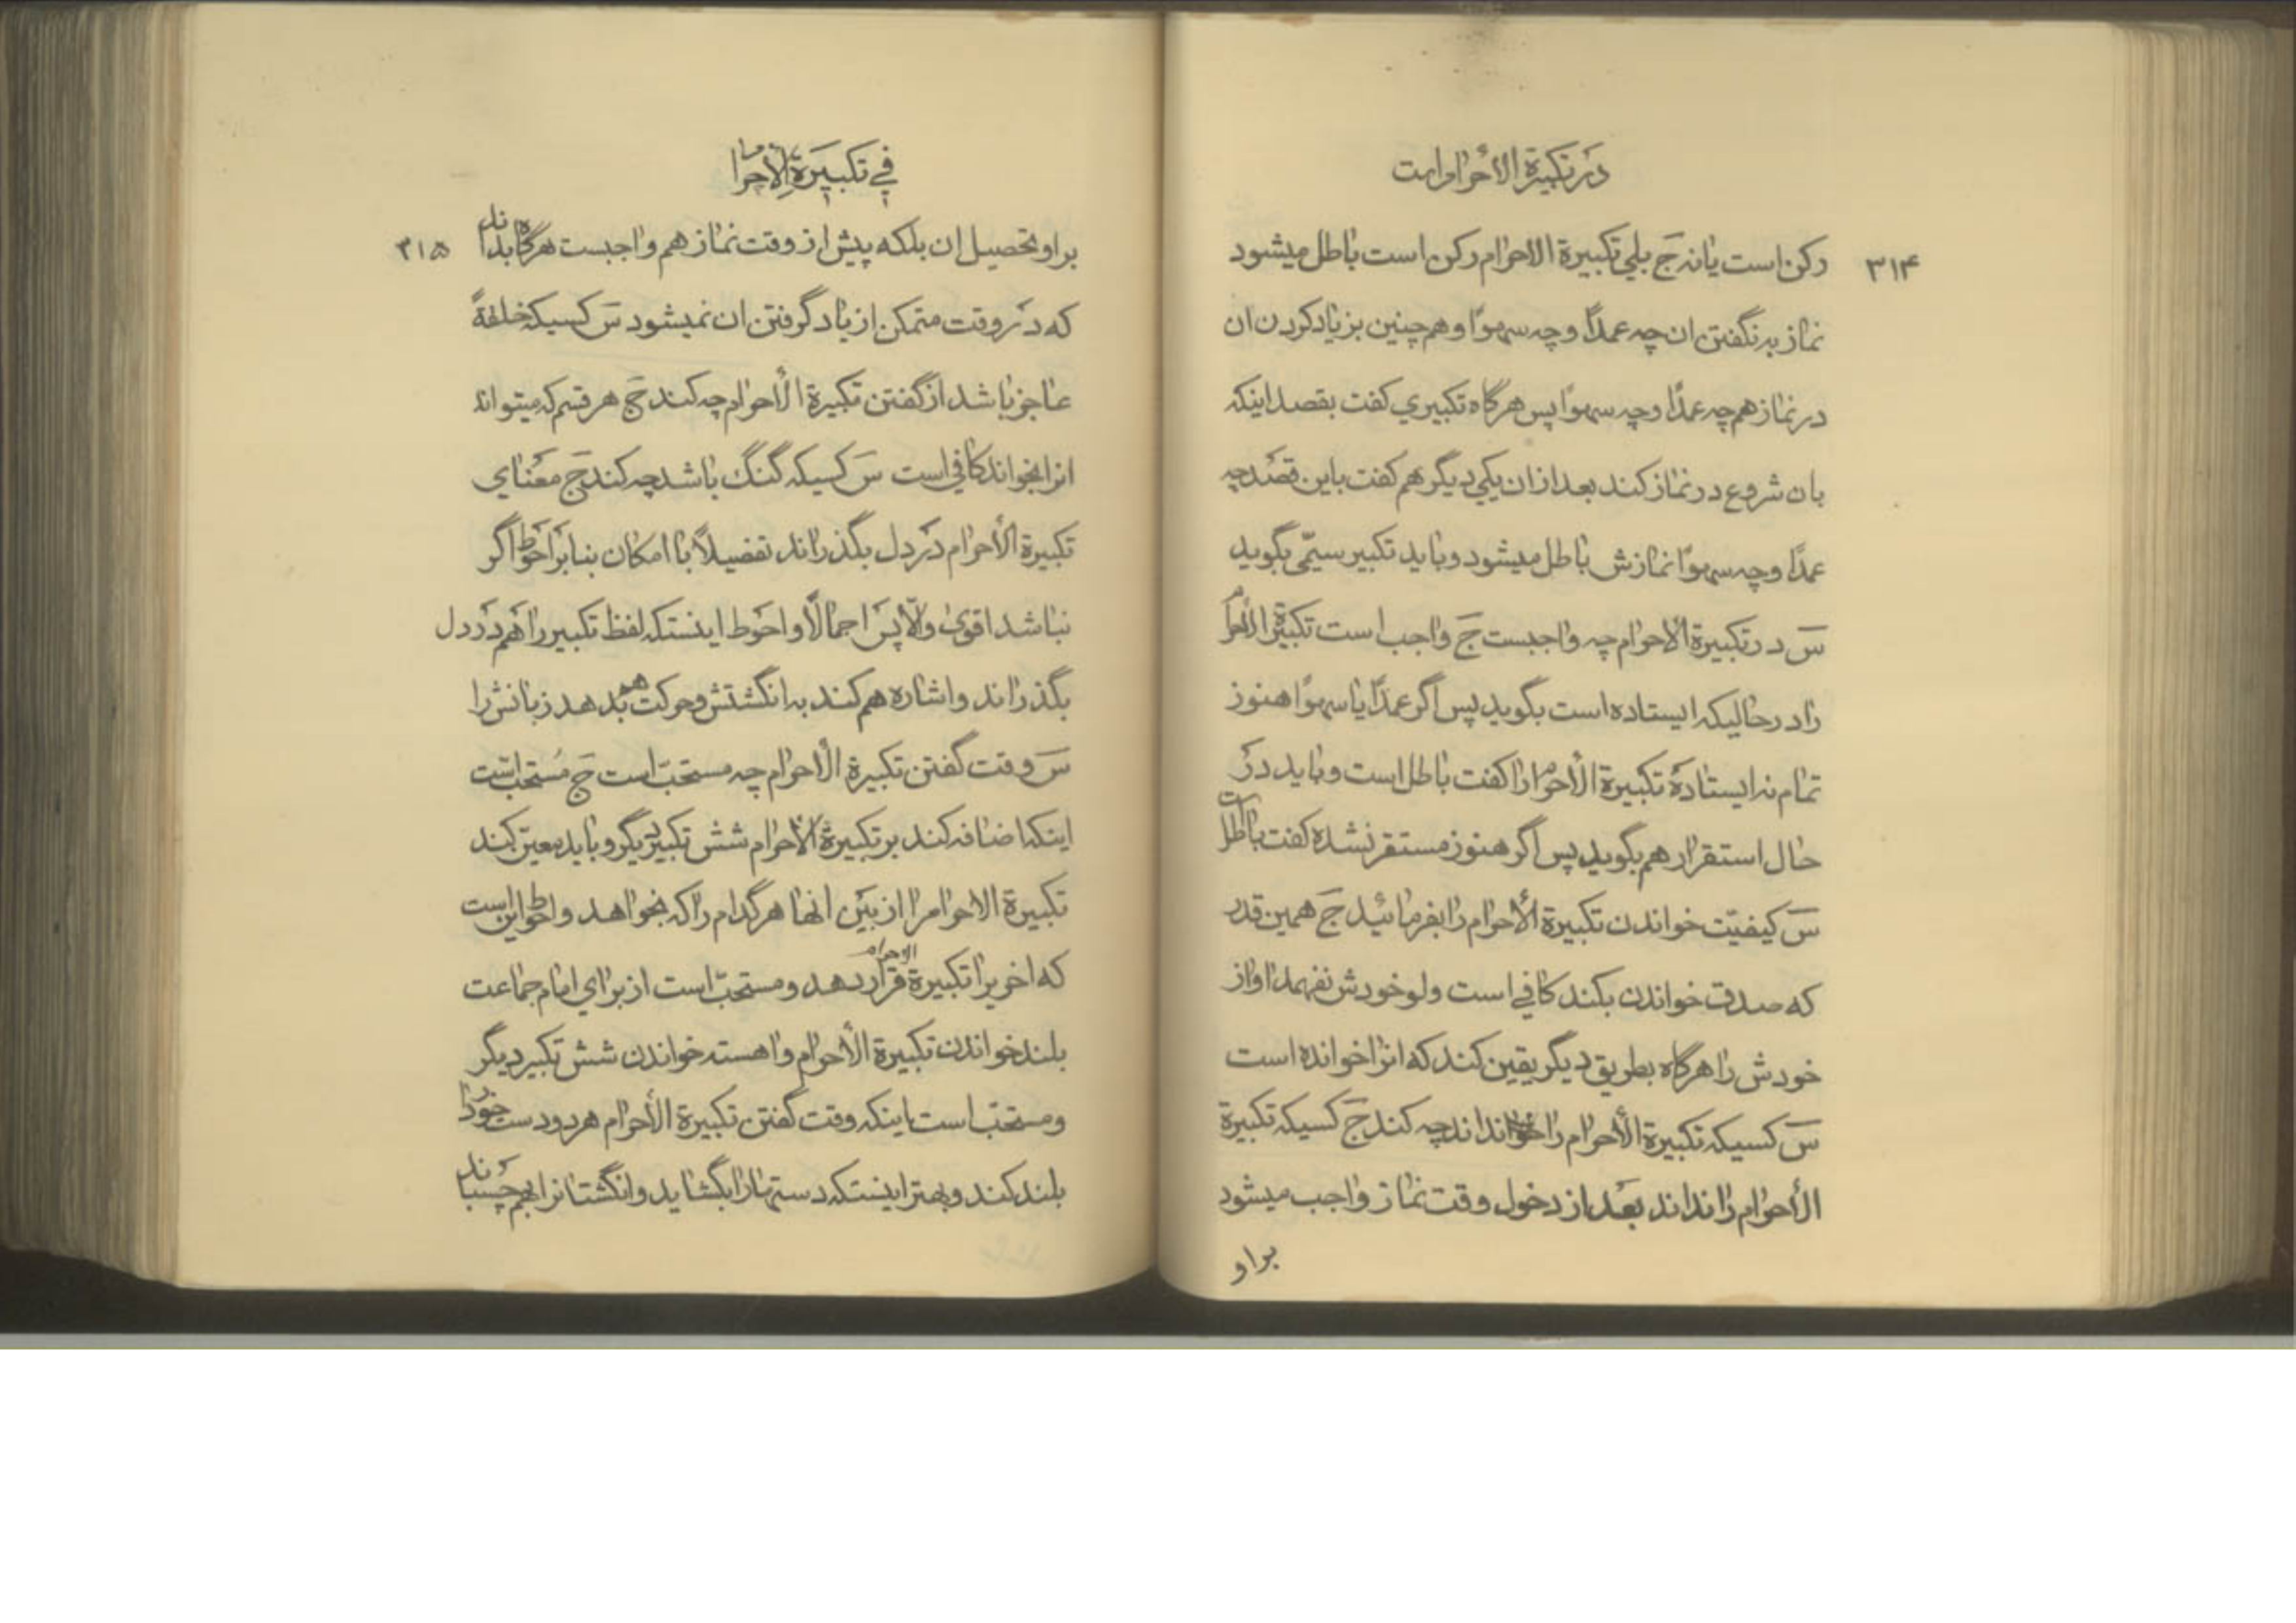 در تکبیرة الاحرام است
۳۱۴
رکن است یا نه جَ بلی تکبیرة الاحرام رکن است باطل میشود
نماز به نگفتن ان چه عمداً و چه سهواً و هم چنین بزیاد کردن ان
در نماز هم چه عمدًا و چه سهوًا پس هرگاه تکبیری کفت بقصد اینکه
بان شروع در نماز کند بعد از ان یکی دیگر هم کفت باین قصد چه
عمدًا و چه سهوًا نمازش باطل میشود و باید تکبیر سیّمی بگوید
سَ در تکبیرة الاحرام چه واجبست جَ واجب است تکبیرة الاحرام
را در حالیکه ایستاده است بگوید پس اگر عمدًا یا سهوًا هنوز
تمام نه ایستاده تکبیرة الأحرام را کفت باطل است و باید در
حال استقرار هم بگوید پس اگر هنوز مستقر نشده کفت باطل است
سَ کیفیّت خواندن تکبیرة الأحرام را بفرمائید جَ همین قدر
که صدق خواندن بکند کافی است ولو خودش نفهمد اواز
خودش را هرگاه بطریق دیگر یقین کند که انرا خوانده است
سَ کسیکه تکبیرة الأحرام را نداند چه کند جَ کسیکه تکبیرة
الأحرام را نداند بعد از دخول وقت نماز واجب میشود
بر او
فی تکبیرة الاحرام
۳۱۵
بر او تحصیل ان بلکه پیش از وقت نماز هم واجبست هرگاه بداند
که در وقت متمکن از یاد گرفتن ان نمیشود سَ کسیکه خلقةً
عاجز باشد از گفتن تکبیرة الأحرام چه کند جَ هر قسم که میتواند
انرا بخواند کافی است سَ کسیکه گنگ باشد چه کند جَ معنای
تکبیرة الأحرام در دل بگذراند تفضیلاً با امکان بنا بر احوط اگر
نباشد اقوی والّا پس اجمالًا و احوط اینستکه لفظ تکبیر را هم در دل
بگذراند و اشاره هم کند به انگشتش و حرکت هم بدهد زبانش را
سَ وقت گفتن تکبیرة الأحرام چه مستحبّ است جَ مستحب است
اینکه اضافه کند بر تکبیرة الاحرام شش تکبیر دیگر و باید معیّن کند
تکبیرة الاحرام را از بین انها هر کدام را که بخواهد و احوط این است
که اخریرا تکبیرة الاحرام قرار دهد و مستحبّ است از برای امام جماعت
بلند خواندن تکبیرة الأحرام و اهسته خواندن شش تکبیر دیگر
و مستحبّ است اینکه وقت گفتن تکبیرة الأحرام هر دو دست خود را
بلند کند و بهتر اینستکه دستها را بگشاید و انگشتانرا بهم چسباند